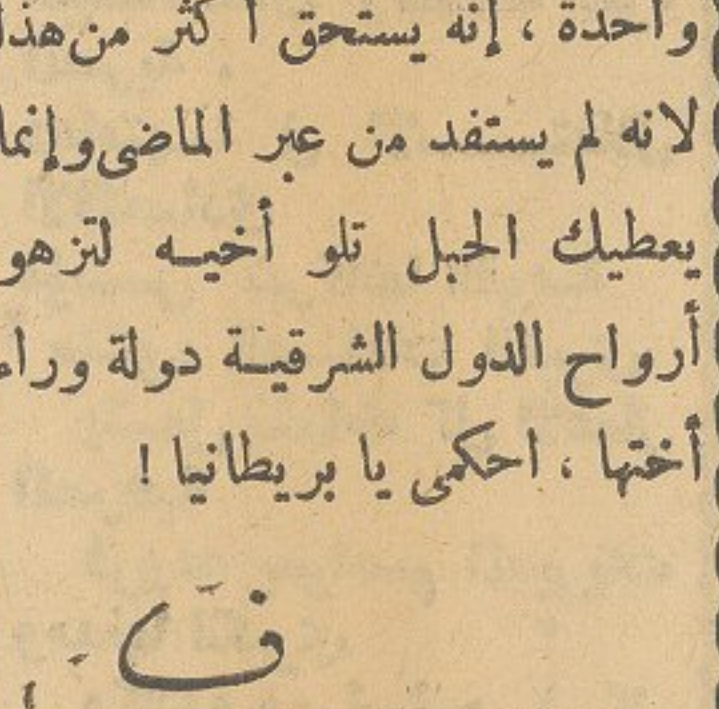 واحدة ، إنه يستحق أكثر من هذا
لانه لم يستفد من عبر الماضى وإنما
يعطيك الحبل تلو أخيه لتزهو
أرواح الدول الشرقية دولة وراء
أختها ، احكمى يا بريطانيا !
ف